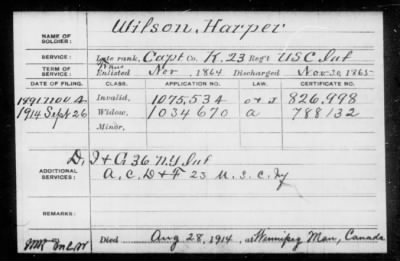 Wilson, Harper
NAME OF SOLDIER:
SERVICE: Late rank, Capt Co. K, 23 Reg't U S C Inf
TERM OF SERVICE: Enlisted Nov, 1864 Discharged Nov 30, 1865
DATE OF FILING. CLASS. APPLICATION NO. LAW. CERTIFICATE NO.
1891 Nov. 4 Invalid, 1075,534 826,998
1914 Sept 26 Widow, 1034670 a 788132
Minor,
D, I & G 36 N.Y. Inf
ADDITIONAL SERVICES: A, C, D & F 23 U. S. C. Inf
REMARKS:
Died Aug 28, 1914, at Winnipeg Man, Canada